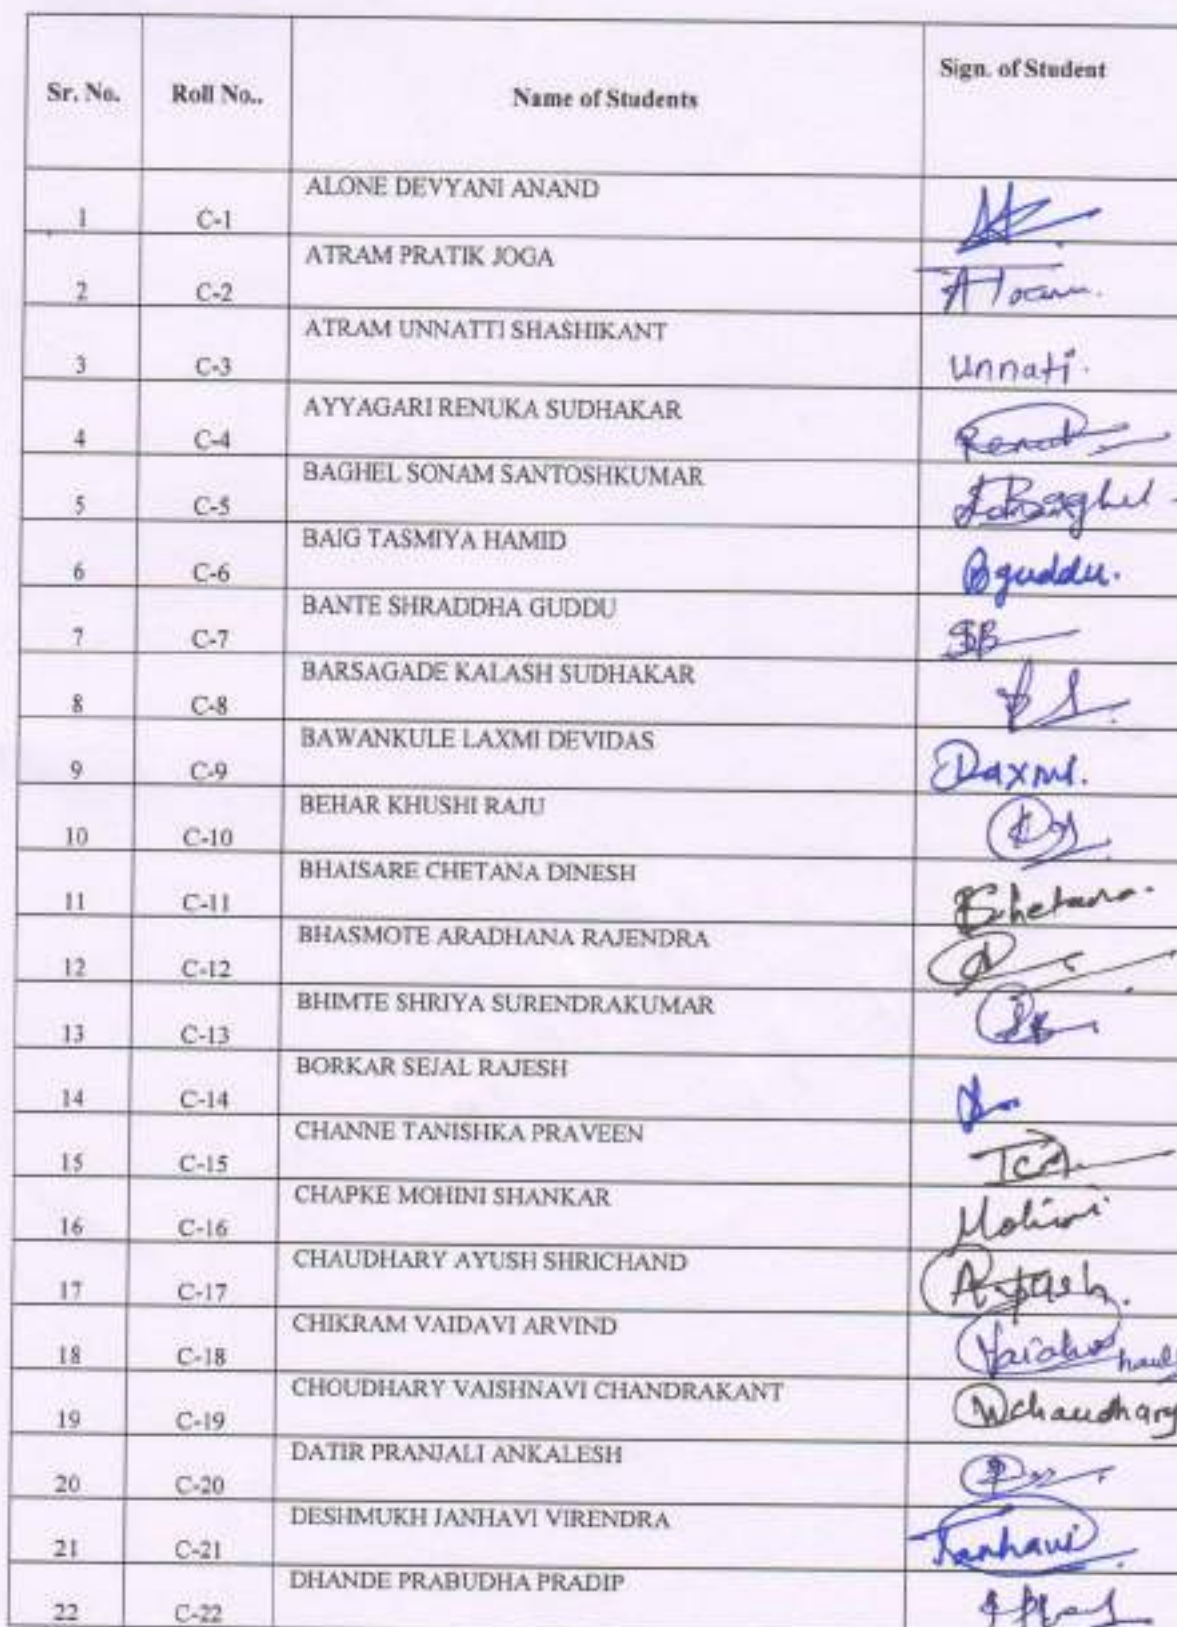 Sr. No. Roll No.. Name of Students Sign. of Student
1 C-1 ALONE DEVYANI ANAND
2 C-2 ATRAM PRATIK JOGA Atram.
3 C-3 ATRAM UNNATTI SHASHIKANT Unnati.
4 C-4 AYYAGARI RENUKA SUDHAKAR
5 C-5 BAGHEL SONAM SANTOSHKUMAR Baghel
6 C-6 BAIG TASMIYA HAMID Bguddu.
7 C-7 BANTE SHRADDHA GUDDU SB
8 C-8 BARSAGADE KALASH SUDHAKAR
9 C-9 BAWANKULE LAXMI DEVIDAS
10 C-10 BEHAR KHUSHI RAJU
11 C-11 BHAISARE CHETANA DINESH
12 C-12 BHASMOTE ARADHANA RAJENDRA
13 C-13 BHIMTE SHRIYA SURENDRAKUMAR
14 C-14 BORKAR SEJAL RAJESH
15 C-15 CHANNE TANISHKA PRAVEEN
16 C-16 CHAPKE MOHINI SHANKAR Mohini
17 C-17 CHAUDHARY AYUSH SHRICHAND Ayush.
18 C-18 CHIKRAM VAIDAVI ARVIND
19 C-19 CHOUDHARY VAISHNAVI CHANDRAKANT Vchaudhary
20 C-20 DATIR PRANJALI ANKALESH
21 C-21 DESHMUKH JANHAVI VIRENDRA Janhavi
22 C-22 DHANDE PRABUDHA PRADIP